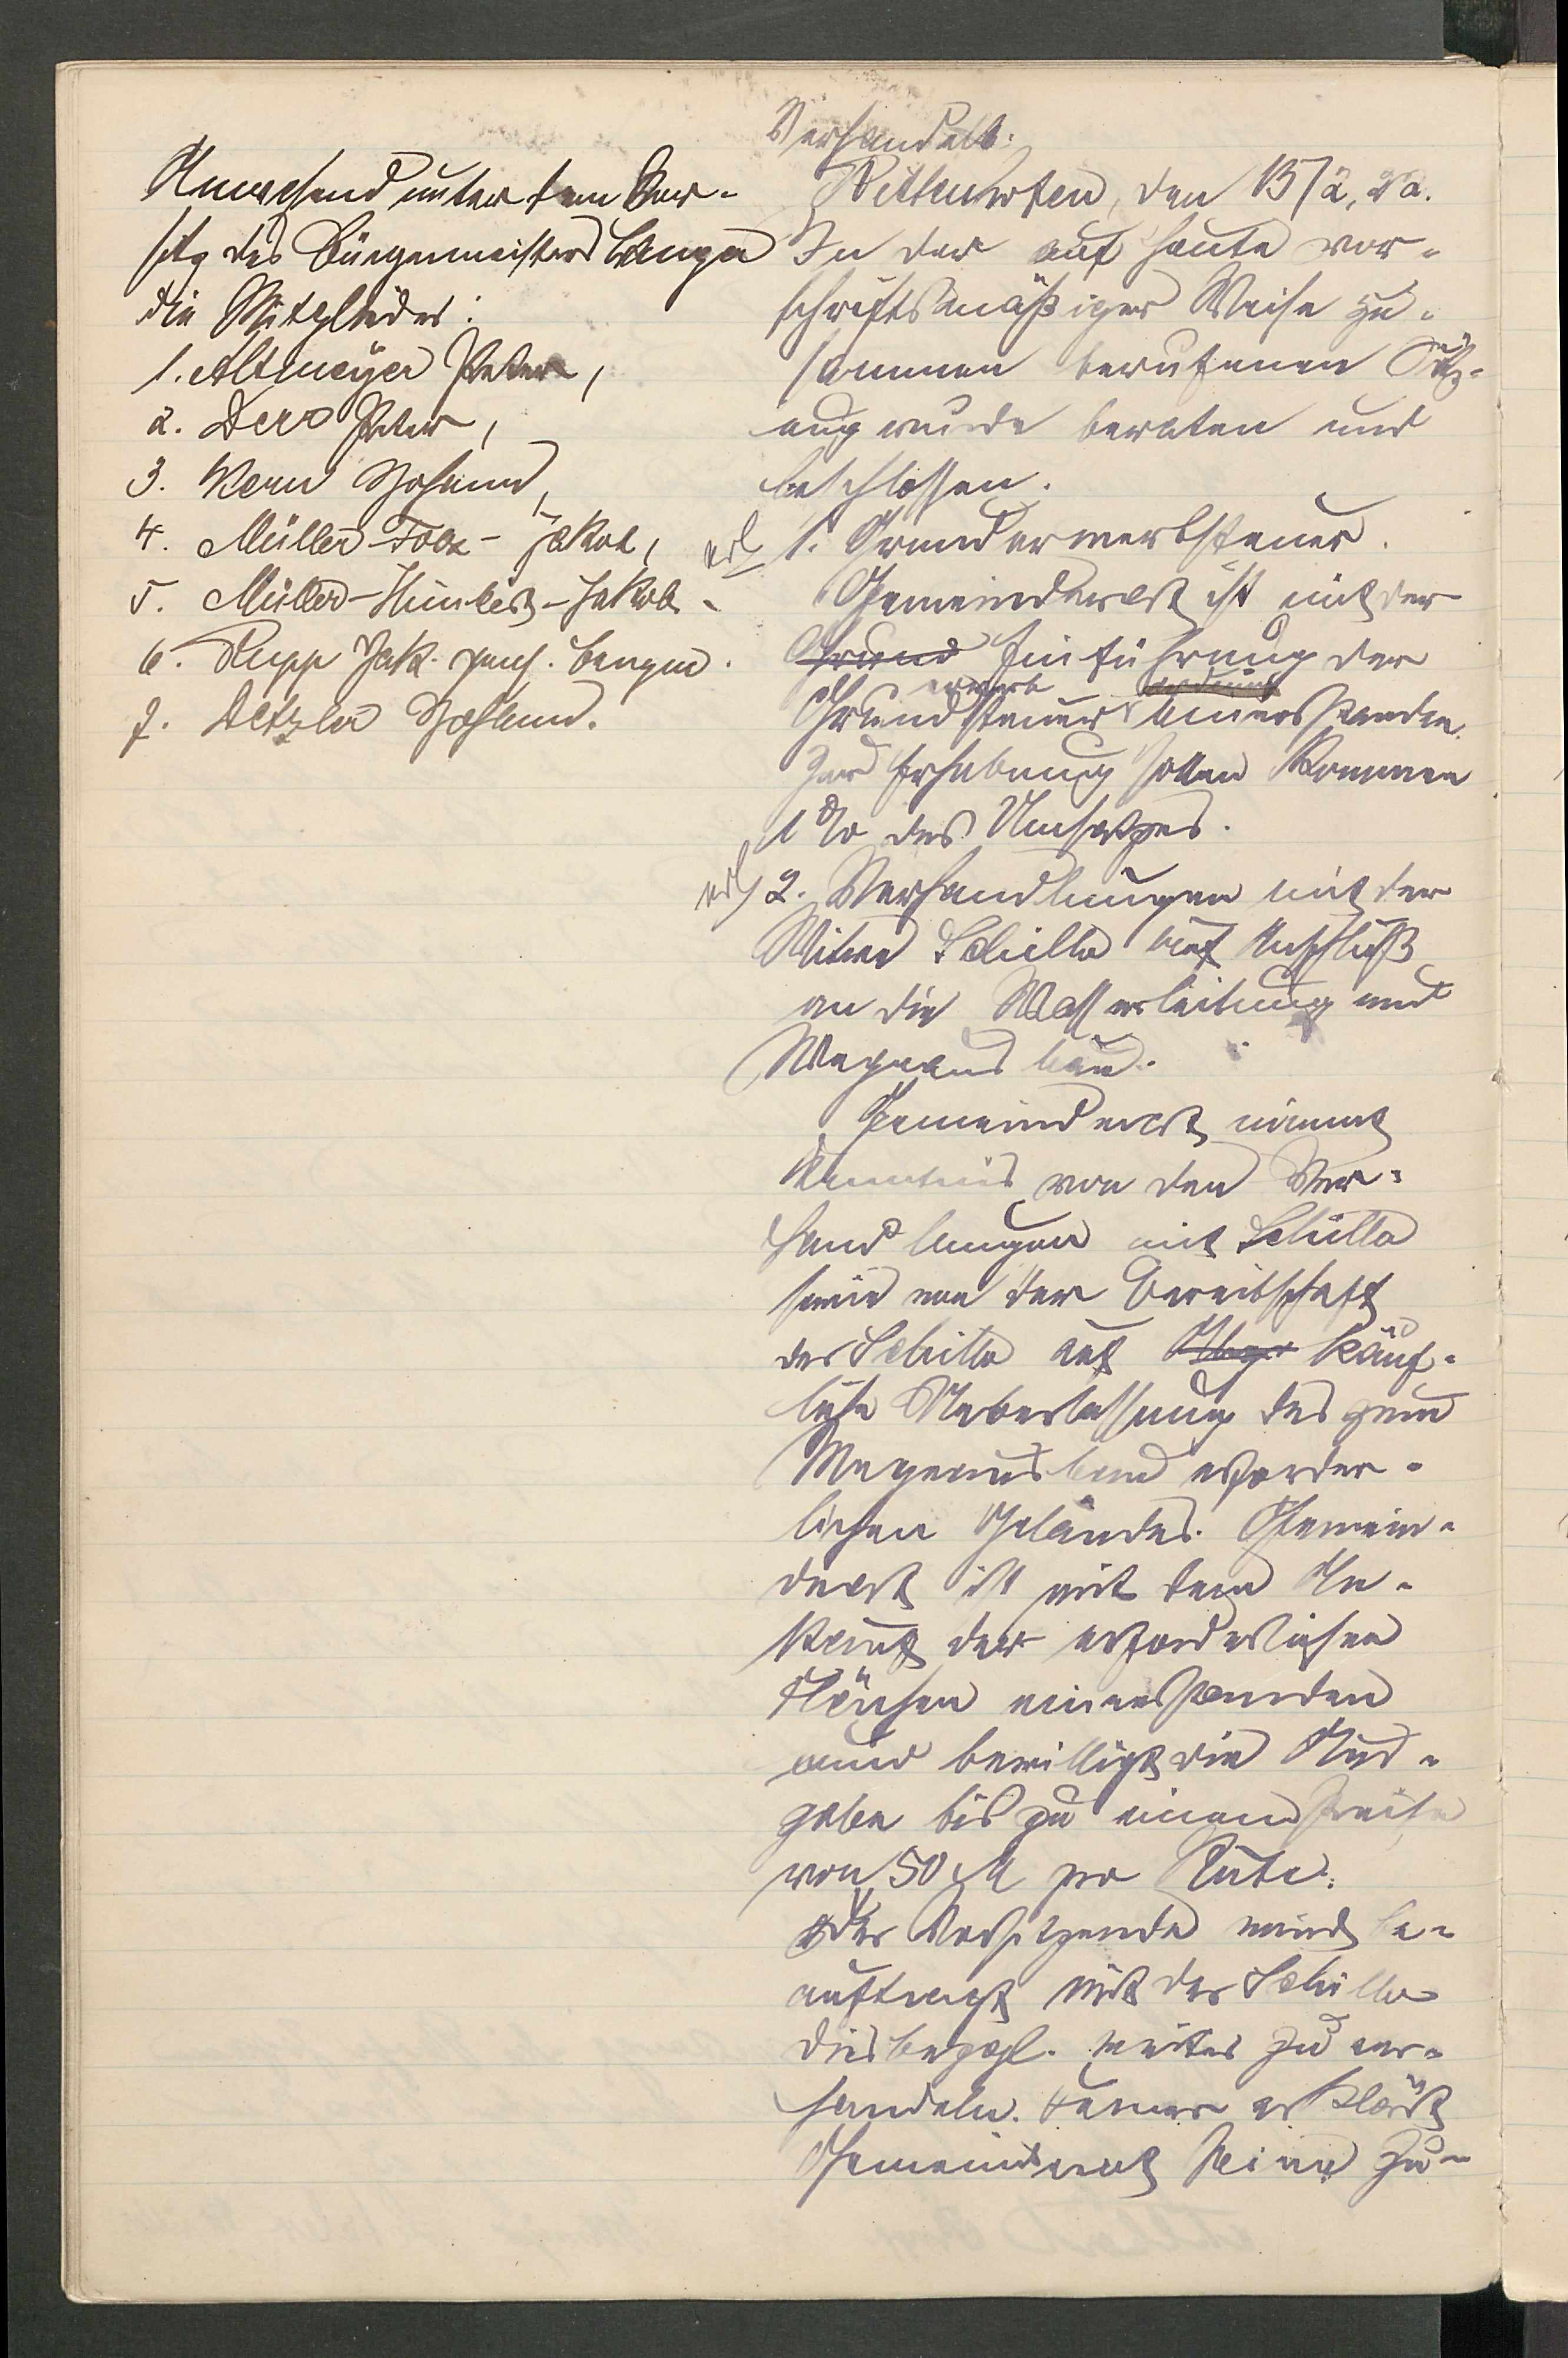 Anwesend unter dem Vor-
sitz des Bürgermeisters Lenger
die Mitglieder:
1. Altmeyer Peter,
2. Derr Peter,
3. Kern Johann,
4. Müller- Jakob,
5. Müller- -Jakob.
6. Rupp Jak.
7. Detzler Johann.
Verhandelt:
den 13/2, 22.
In der auf heute vor-
schriftsmäßiger Weise zu-
sammen berufenen Sitz-
ung wurde beraten und
beschlossen.
erl 1. Grunderwerbsteuer.
Gemeinderat ist mit der
Grund Einführung der
erwerb
Grundsteuer einverstanden.
Zur Erhebung sollen kommen
1 % des Umsatzes.
erl 2. Verhandlungen mit der
Witwe Schille auf Anschluß
an die Wasserleitung und
Wegeausbau.
Gemeinderat nimmt
Kenntnis von den Ver-
handlungen mit Schille
sowie von der Bereitschaft
der Schille auf käuf-
liche Ueberlassung des zum
Wegeausbau erforder-
lichen Geländes. Gemein-
derat ist mit dem An-
kauf der erforderlichen
Flächen einverstanden
und bewilligt die Aus-
gabe bis zu einem Preise
von 50 M pro Rute.
Der Vorsitzende wird be-
auftragt mit der Schille
diesbezgl. weiter zu ver-
handeln. Ferner erklärt
Gemeinderat seine Zu-